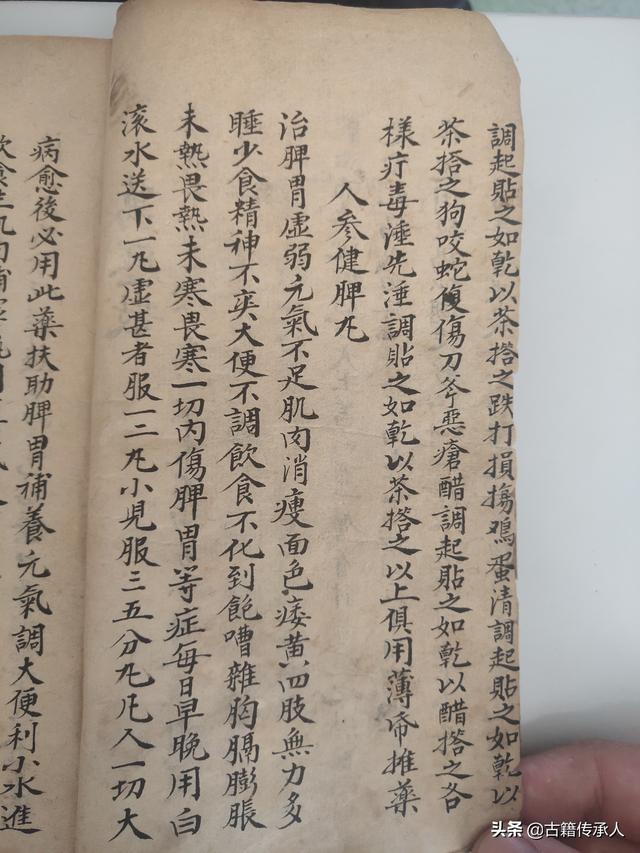 調起貼之如乾以茶搭之跌打損傷鳮蛋清調起貼之如乾以
茶搭之狗咬蛇傷刀斧惡瘡醋調起貼之如乾以醋搭之各
樣疔毒唾先涶調貼之如乾以茶搭之以上俱用薄帋摊藥
人參健脾九
治脾胃虛弱元氣不足肌肉消瘦面色痿黄四肢無力多
睡少食精神不爽大便不調飲食不化到飽嘈雜胸膈膨脹
未熱畏熱未寒畏寒一切内傷脾胃等症每日早晚用白
滚水送下一九虛甚者服一二九小児服三五分九凡人一切大
病愈後必用此藥扶助脾胃補養元氣調大便利小水進
飲食生肌肉補
头条 @古籍传承人